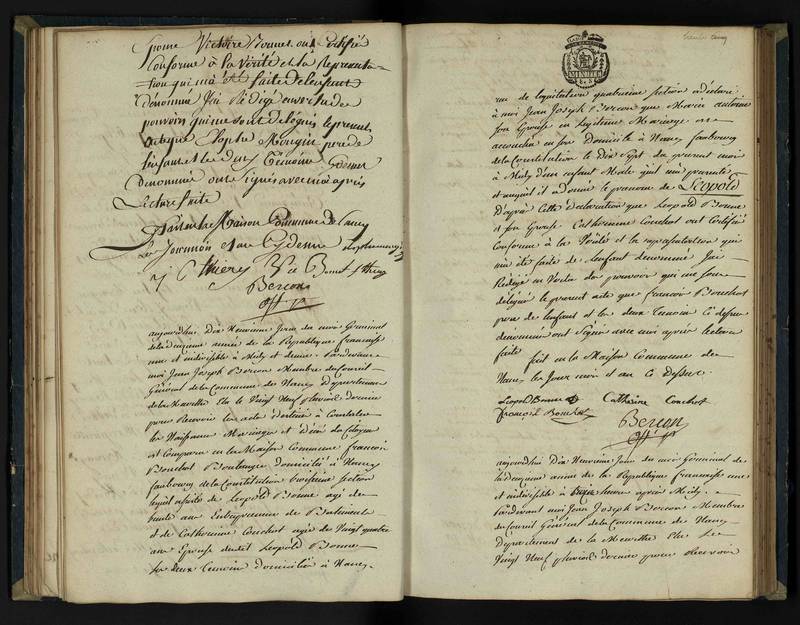 Victoire Bonnet ont Certifié
Conforme à la vérité et la Représenta-
tion qui m'a été faite de l'enfant
dénommé J'ai Rédigé en vertu des
pouvoirs qui me sont délégués le présent
acte que Mougin père de
l'enfant et les deux Témoins
denommé ont Signés avec moi après
Lecture faite
fait en la Maison Commune de Nancy
Les Jour mois et an Cy dessus
Thiery Bonnet f. Thiery
Bercon
off. p.
aujourdhui Dix Neuvieme Jour du mois Germinal
de la deuxieme année de la Republique francaise
une et indivisible à Midy et demie Pardevant
moi Jean Joseph Bercon Membre du Conseil
Général de la Commune de Nancy departement
de la Meurthe Elu le Vingt Neuf pluviose dernier
pour Recevoir les actes destinés à Constater
les Naissances Mariages et décès des Citoyens
est Comparu en la Maison Commune francois
Bouchot Boulanger domicilié à Nancy
faubourg de la Constitution troisieme section
lequel assisté de Leopold Bonne agé de
trente ans Entrepreneur de Batiments
et de Catherine Couchot agée de Vingt quatre
ans Epouse dudit Leopold Bonne
les deux Temoins domiciliés à Nancy
MINUTE
rue de quatrieme section a declaré
à moi Jean Joseph Bercon que Marie
son Epouse en legitime Mariage est
accouchée en son Domicile à Nancy faubourg
de la Constitution le Dix Sept du present mois
à Midy d'un enfant Male qu'il m'a presenté
et auquel il a donné le prenom de Leopold
D'après Cette déclaration que Leopold Bonne
et son Epouse Catherine Couchot ont Certifié
Conforme à la Vérité et la representation qui
m'a été faite de l'enfant denommé J'ai
Rédigé en Vertu des pouvoirs qui me sont
délégués le present acte que francois Bouchot
pere de l'enfant et les deux Temoins Ci dessus
denommés ont Signé avec moi après lecture
faite
fait en la Maison Commune de
Nancy les Jour mois et an Ci Dessus
Leopold Bonne Catherine Couchot
François Bouchot
Bercon
off. p.
aujourdhui Dix Neuvieme Jour du mois Germinal de
la deuxieme année de la Republique francaise une
et indivisible à heure après Midy
Pardevant moi Jean Joseph Bercon Membre
du Conseil Général de la Commune de Nancy
Departement de la Meurthe Elu le
Vingt Neuf pluviose dernier pour Recevoir